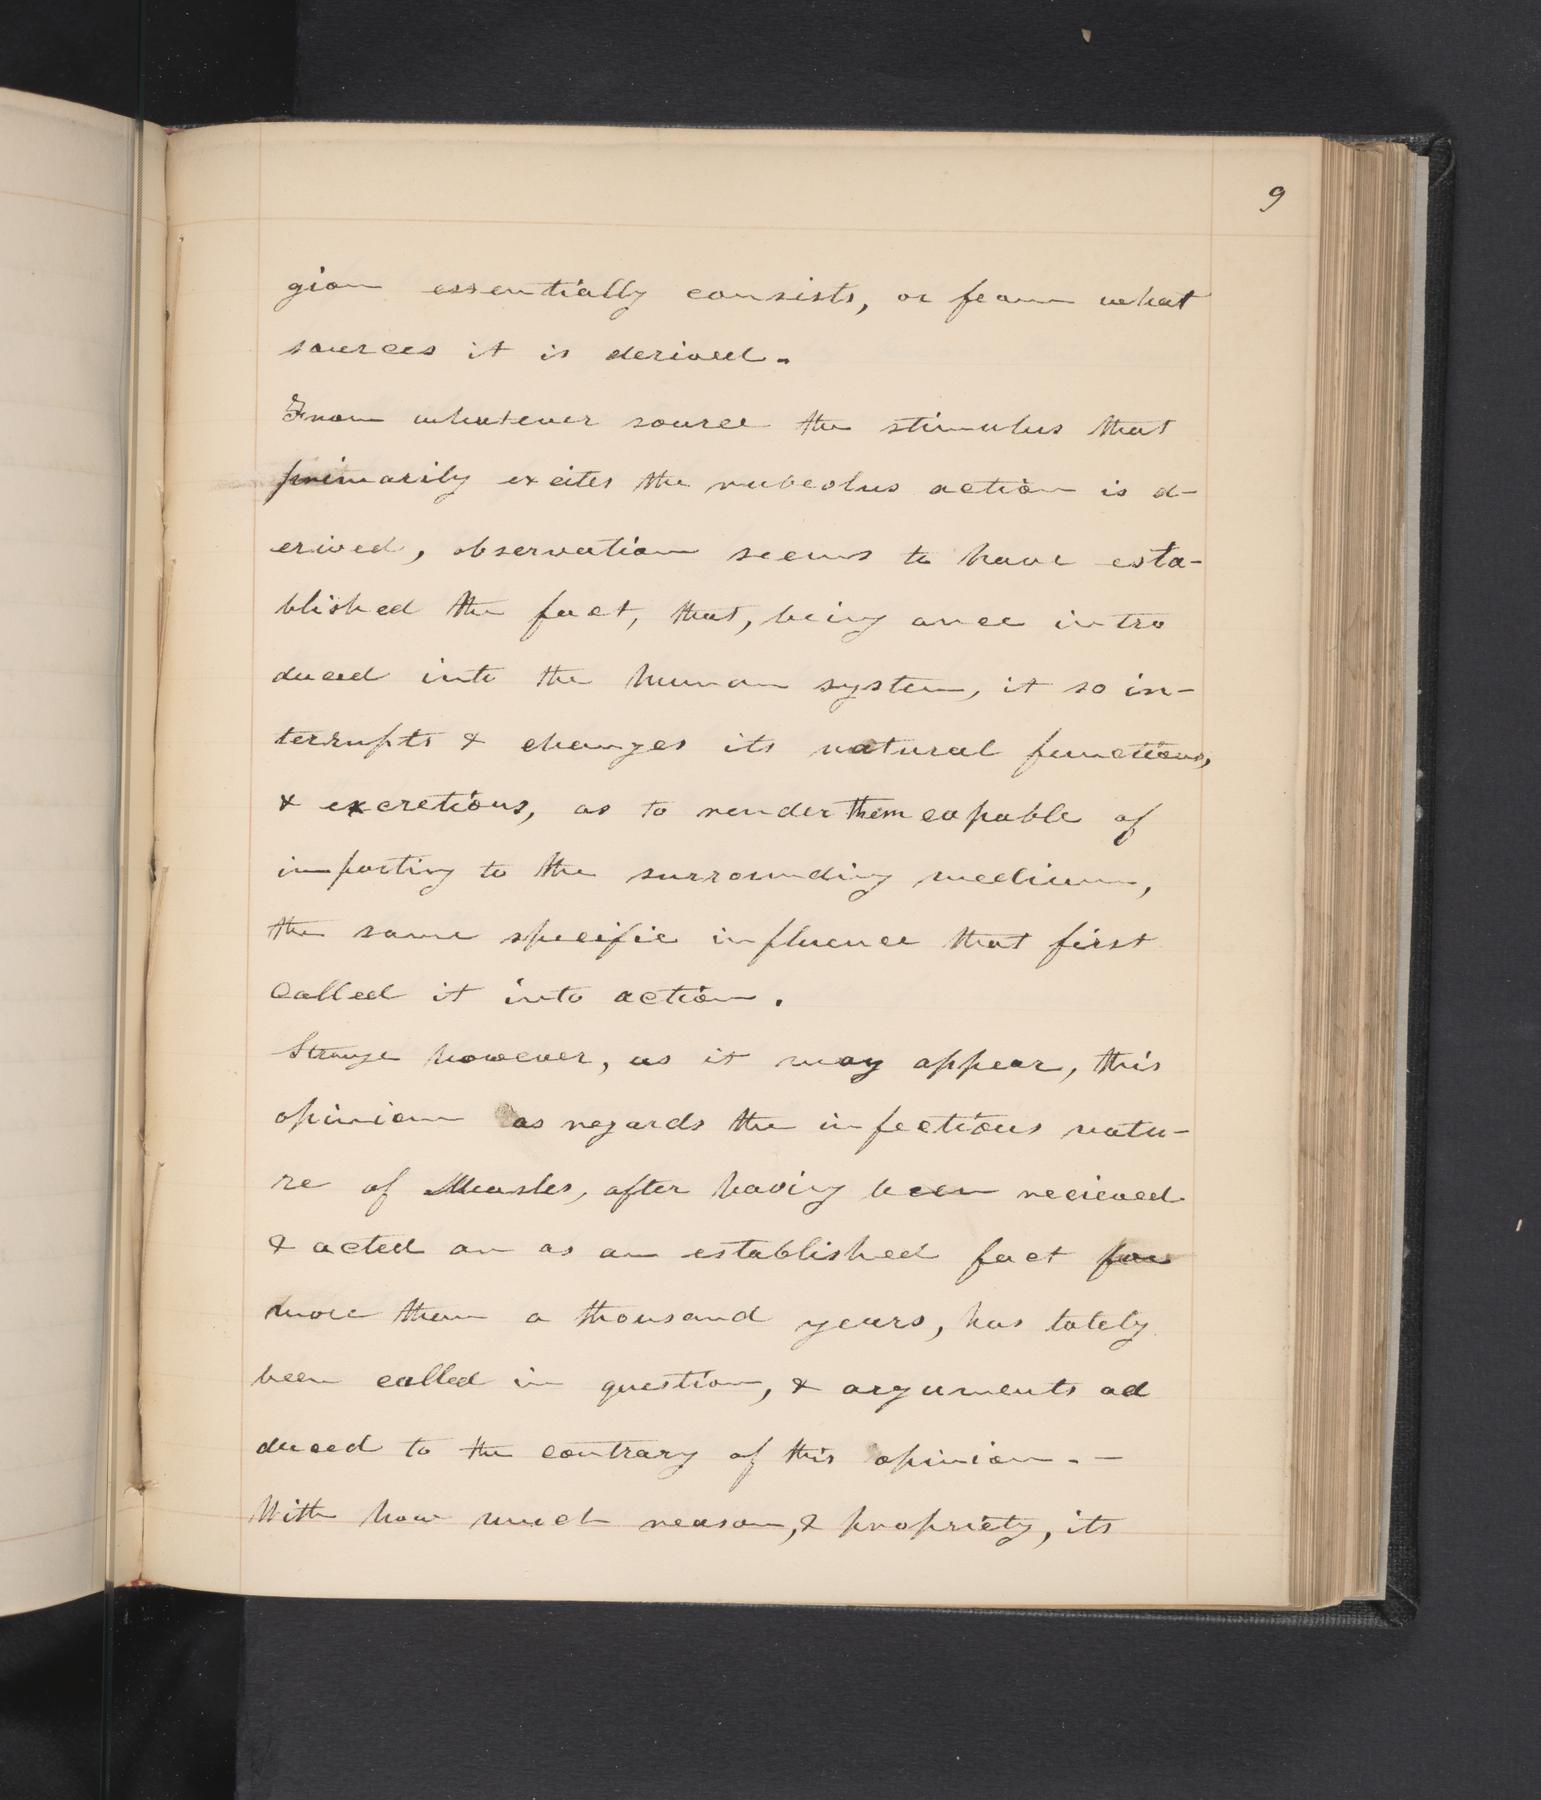 9
gion essentially consists, or from what
sources it is derived.
From whatever source the stimulus that
primarily excites the rubeolus action is d-
erived, observation seems to have esta-
blished the fact, that, being once intro
duced into the human system, it so in-
terrupts & changes its natural functions,
& excretions, as to render them capable of
imparting to the surrounding medium,
the same specific influence that first
called it into action.
Strange however, as it may appear, this
opinion as regards the infectious natu-
re of Measles, after having been recieved
& acted on as an established fact for
more than a thousand years, has lately
been called in question, & arguments ad
duced to the contrary of this opinion. -
With how much reason, & propriety, its